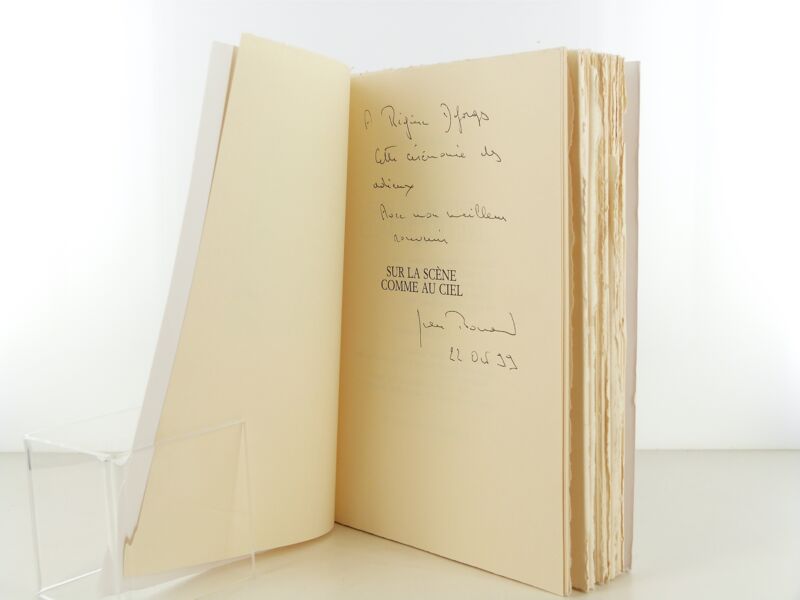 A Régine Deforges
Cette cérémonie des
adieux
Avec mon meilleur
souvenir
SUR LA SCÈNE
COMME AU CIEL
Jean Rouaud
22 Oct 99